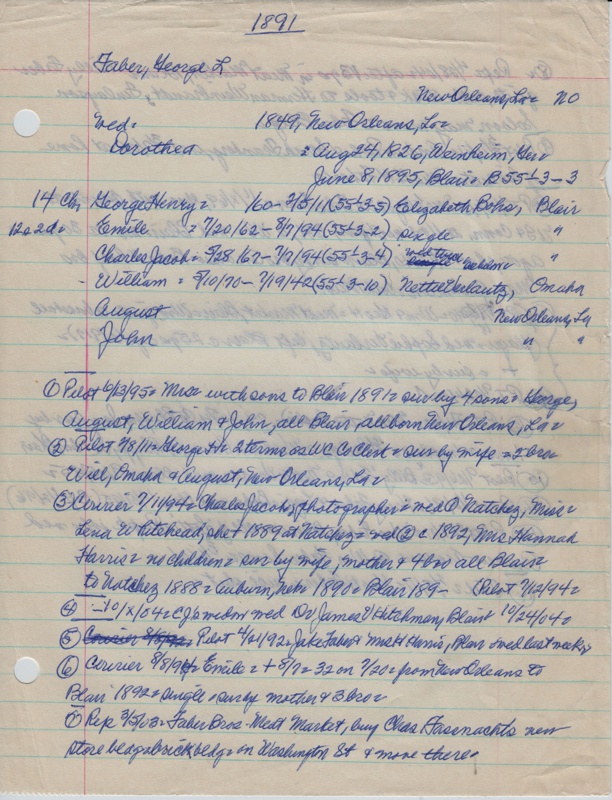 1891
Faber, George L
New Orleans, La = NO
med = 1849, New Orleans, La =
Dorothea = Aug 24, 1826, Weinheim, Ger =
June 8, 1895, Blair = B55-3-3
14 Ch, George Henry = 1860 - 2/5/11 (55-3-5) Elizabeth Bohs, Blair
12 a 2 d = Emile = 7/20/62 - 8/7/94 (55-3-2) single "
Charles Jacob = 5/28/67 - 7/7/94 (55-3-4) "
- William = 5/10/70 - 7/19/42 (55-3-10) Nettie Verlautz, Omaha
August New Orleans, La
John " "
① Pilot 6/13/95 = Mrs = with sons to Blair 1891 = sur by 4 sons = George,
August, William & John, all Blair, all born New Orleans, La =
② Pilot 2/8/11 = George H = 2 terms as WC Co Clerk = sur by wife = 2 bro =
Will, Omaha & August, New Orleans, La =
③ Courier 7/11/94 = Charles Jacob, photographer = med ① Natchez, Miss =
Lena Whitehead, she + 1889 at Natchez = med ② c 1892, Mrs Hannah
Harris = no children = sur by wife, mother & 4 bro all Blair =
to Natchez 1888 = Auburn, Neb = 1890 = Blair 189- (Pilot 7/12/94 =
④ - 10/x/04 = CJ's widow med Dr James V Hitchman, Blair 10/24/04 =
⑤ Pilot 4/21/92 = Jake Faber & Mrs H Harris, Blair = med last week =
⑥ Courier 8/8/94 = Emile = + 8/7 = 32 on 7/20 = from New Orleans to
Blair 1892 = single = sur by mother & 3 bro =
⑦ Rep 3/5/03 = Faber Bros Meat Market, buy Chas Fasenachts new
store bldg = brick bldg = on Washington St & move there =